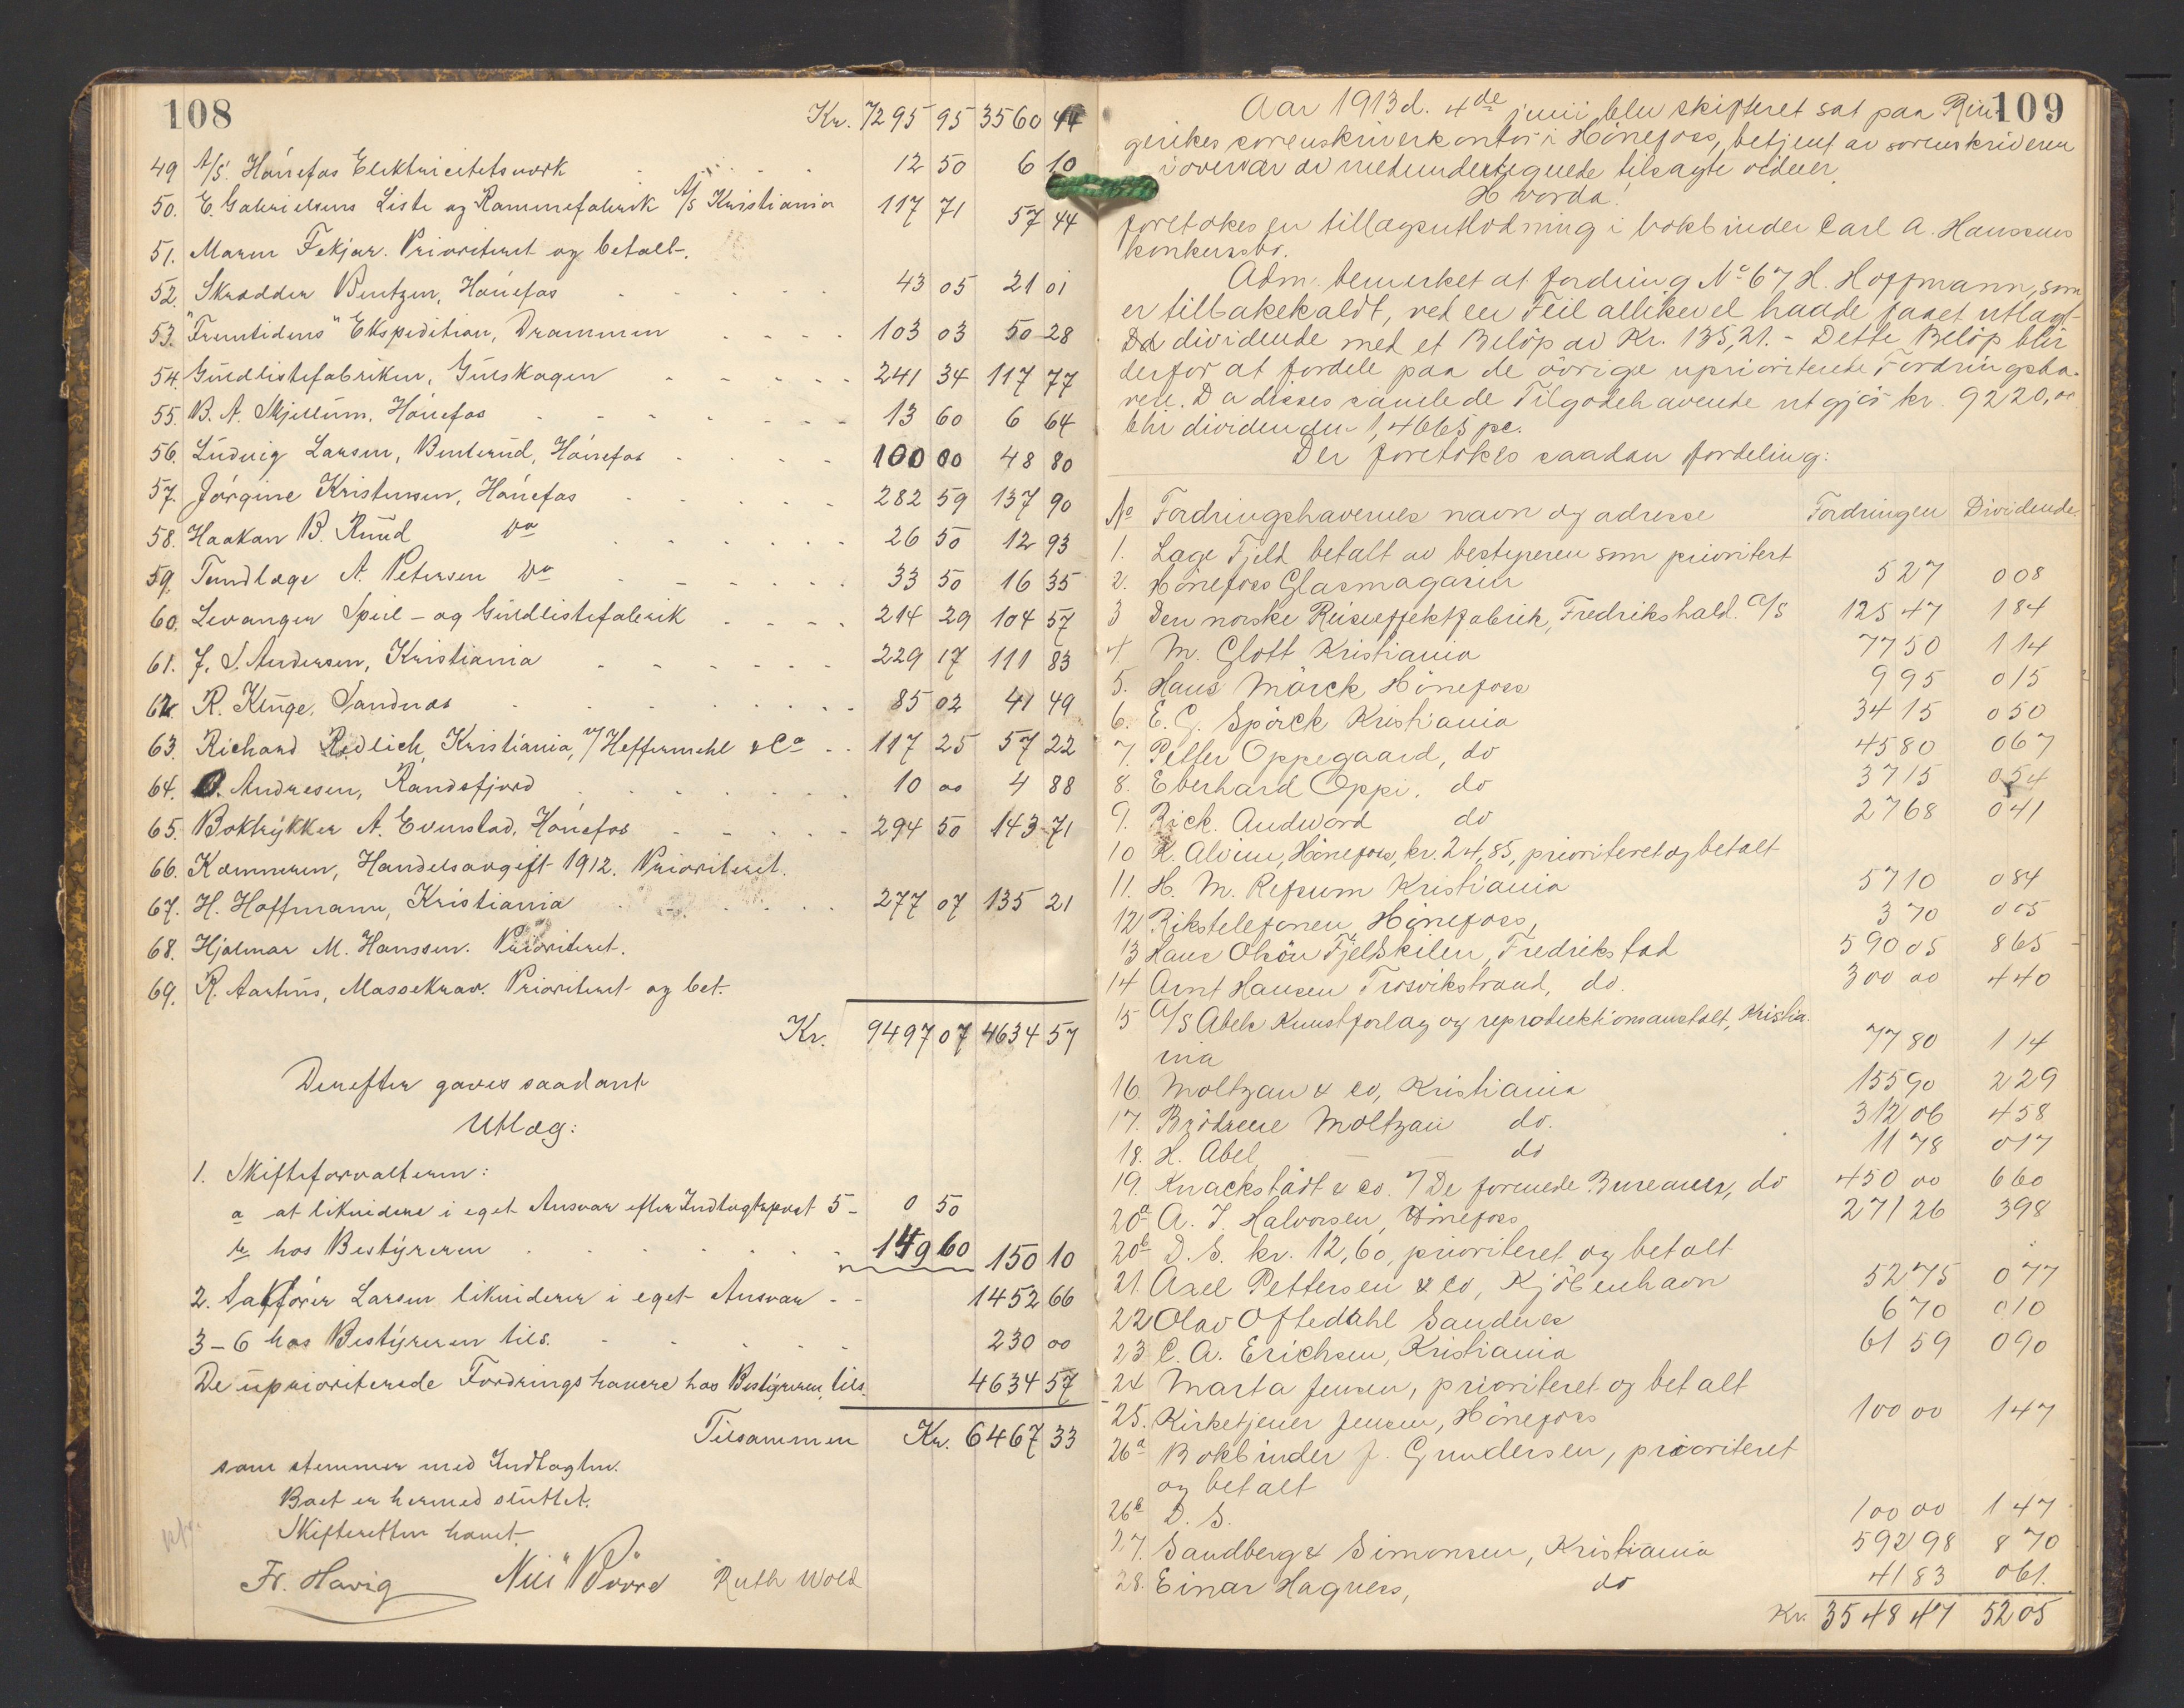 108
Kr. 7295 95 3560 44
49 A/S. Hönefos Elektricitetsverk 12 50 6 10
50. E. Gabrielsens Liste og Rammefabrik A/S Kristiania 117 71 57 44
51. Maren Fekjær. Prioriteret og betalt.
52. Skrædder Bentzen, Hönefos 43 05 21 01
53. "Fremtidens" Ekspedition, Drammen 103 03 50 28
54. Guldlistefabriken, Gulskogen 241 34 117 77
55. B. A. Skjellum, Hönefos 13 60 6 64
56. Ludvig Larsen, Benterud, Hönefos 100 00 48 80
57. Jörgine Kristensen, Hönefos 282 59 137 90
58. Haakon B. Ruud do 26 50 12 93
59. Tandlæge A. Petersen do 33 50 16 35
60. Levanger Speil- og Guldlistefabrik 214 29 104 57
61. J. S. Andersen, Kristiania 229 17 111 83
62. R. Kluge, Sandnes 85 02 41 49
63. Richard Redlich, Kristiania, v/ Heffermehl & Co 117 25 57 22
64. O. Andresen, Randsfjord 10 00 4 88
65. Boktrykker A. Evenstad, Hönefos 294 50 143 71
66. Kæmneren, Handelsavgift 1912. Prioriteret.
67. H. Hoffmann, Kristiania 277 07 135 21
68. Hjalmar M. Hanssen. Prioriteret.
69. R. Aarhus, Massekrav. Prioriteret og bet.
Kr. 9497 07 4634 57
Derefter gaves saadant
Utlæg:
1. Skifteforvalteren:
a at likvidere i eget Ansvar efter Indtægtspost 5 - 0 50
b hos Bestyreren 149 60 150 10
2. Sakförer Larsen likviderer i eget Ansvar - - 1452 66
3-6 hos Bestyreren tils. 230 00
De uprioriterede Fordringshavere hos Bestyreren, tils. 4634 57
Tilsammen Kr. 6467 33
som stemmer med Indtægten.
Boet er hermed sluttet.
Skifteretten hævet.
Fr. Havig Ruth Wold
109
Aar 1913 d. 4de juni blev skifteret sat paa Rin-
gerikes sorenskriverkontor i Hönefoss, betjent av sorenskriveren
i overvær av medundertegnede tilsagte vidner,
Hvorda!
foretokes en tillægsutlodning i bokbinder Carl A. Hanssens
konkursbo.
Adm. bemerket at fordring No 67 H. Hoffmann, som
er tilbakekaldt, ved en Feil allikevel hadde faaet utlagt
dividende med et Belöp av Kr. 135,21. - Dette Belöp blir
derfor at fordele paa de övrige uprioriterede Fordringsha-
vere. Da disses samlede Tilgodehavende utgjör kr. 9220,00
blir dividenden 1,4665 pc.
Der foretokes saadan fordeling:
No Fordringshavernes navn og adresse Fordringen Dividende.
1. Lage Fjeld betalt av bestyreren som prioritert
2. Hönefoss Glasmagasin 5 27 0 08
3 Den norske Reiseeffektfabrik, Fredrikshald. A/S 125 47 1 84
4 M. Glott Kristiania 77 50 1 14
5. Haus Mörck Hönefoss 9 95 0 15
6. E. G. Spörck Kristiania 34 15 0 50
7. Petter Oppegaard, do 45 80 0 67
8. Eberhard Oppi. do 37 15 0 54
9. Rich. Andvord do 27 68 0 41
10 K. Alvim, Hönefoss, kr. 24,85, prioriteret og betalt
11. H. M. Refsum Kristiania 57 10 0 84
12 Rikstelefonen, Hönefoss, 3 70 0 05
13 Hans Olsön Fjeldskilen, Fredrikstad 590 05 8 65
14 Arnt Hansen Trosvikstrand, do. 300 00 4 40
15 A/S Abels Kunstforlag og reproduktionsanstalt, Kristia-
nia 77 80 1 14
16. Moltzau & Co, Kristiania 155 90 2 29
17. Brödrene Moltzau do. 312 06 4 58
18. H. Abel do 11 78 0 17
19. Knackstädt & co. v/ De forenede Bureauer, do 450 00 6 60
20a A. J. Halvorsen, Hönefoss 271 26 3 98
20b D. S. kr. 12,60, prioriteret og betalt
21. Axel Pettersen & Co, Kjöbenhavn 52 75 0 77
22 Olav Oftedahl Sandnes 6 70 0 10
23 C. A. Erichsen, Kristiania 61 59 0 90
24 Marta Jensen, prioriteret og betalt
25. Kirketjener Jensen, Hönefoss 100 00 1 47
26a Bokbinder J. Gundersen, prioriteret
og betalt
26b D. S. 100 00 1 47
27. Sandberg & Simonsen, Kristiania 592 98 8 70
28. Einar Hagness, do 41 83 0 61.
Kr. 3548 47 52 05